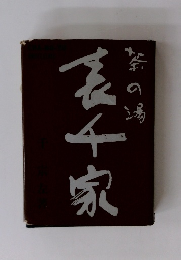 茶の湯
表千家